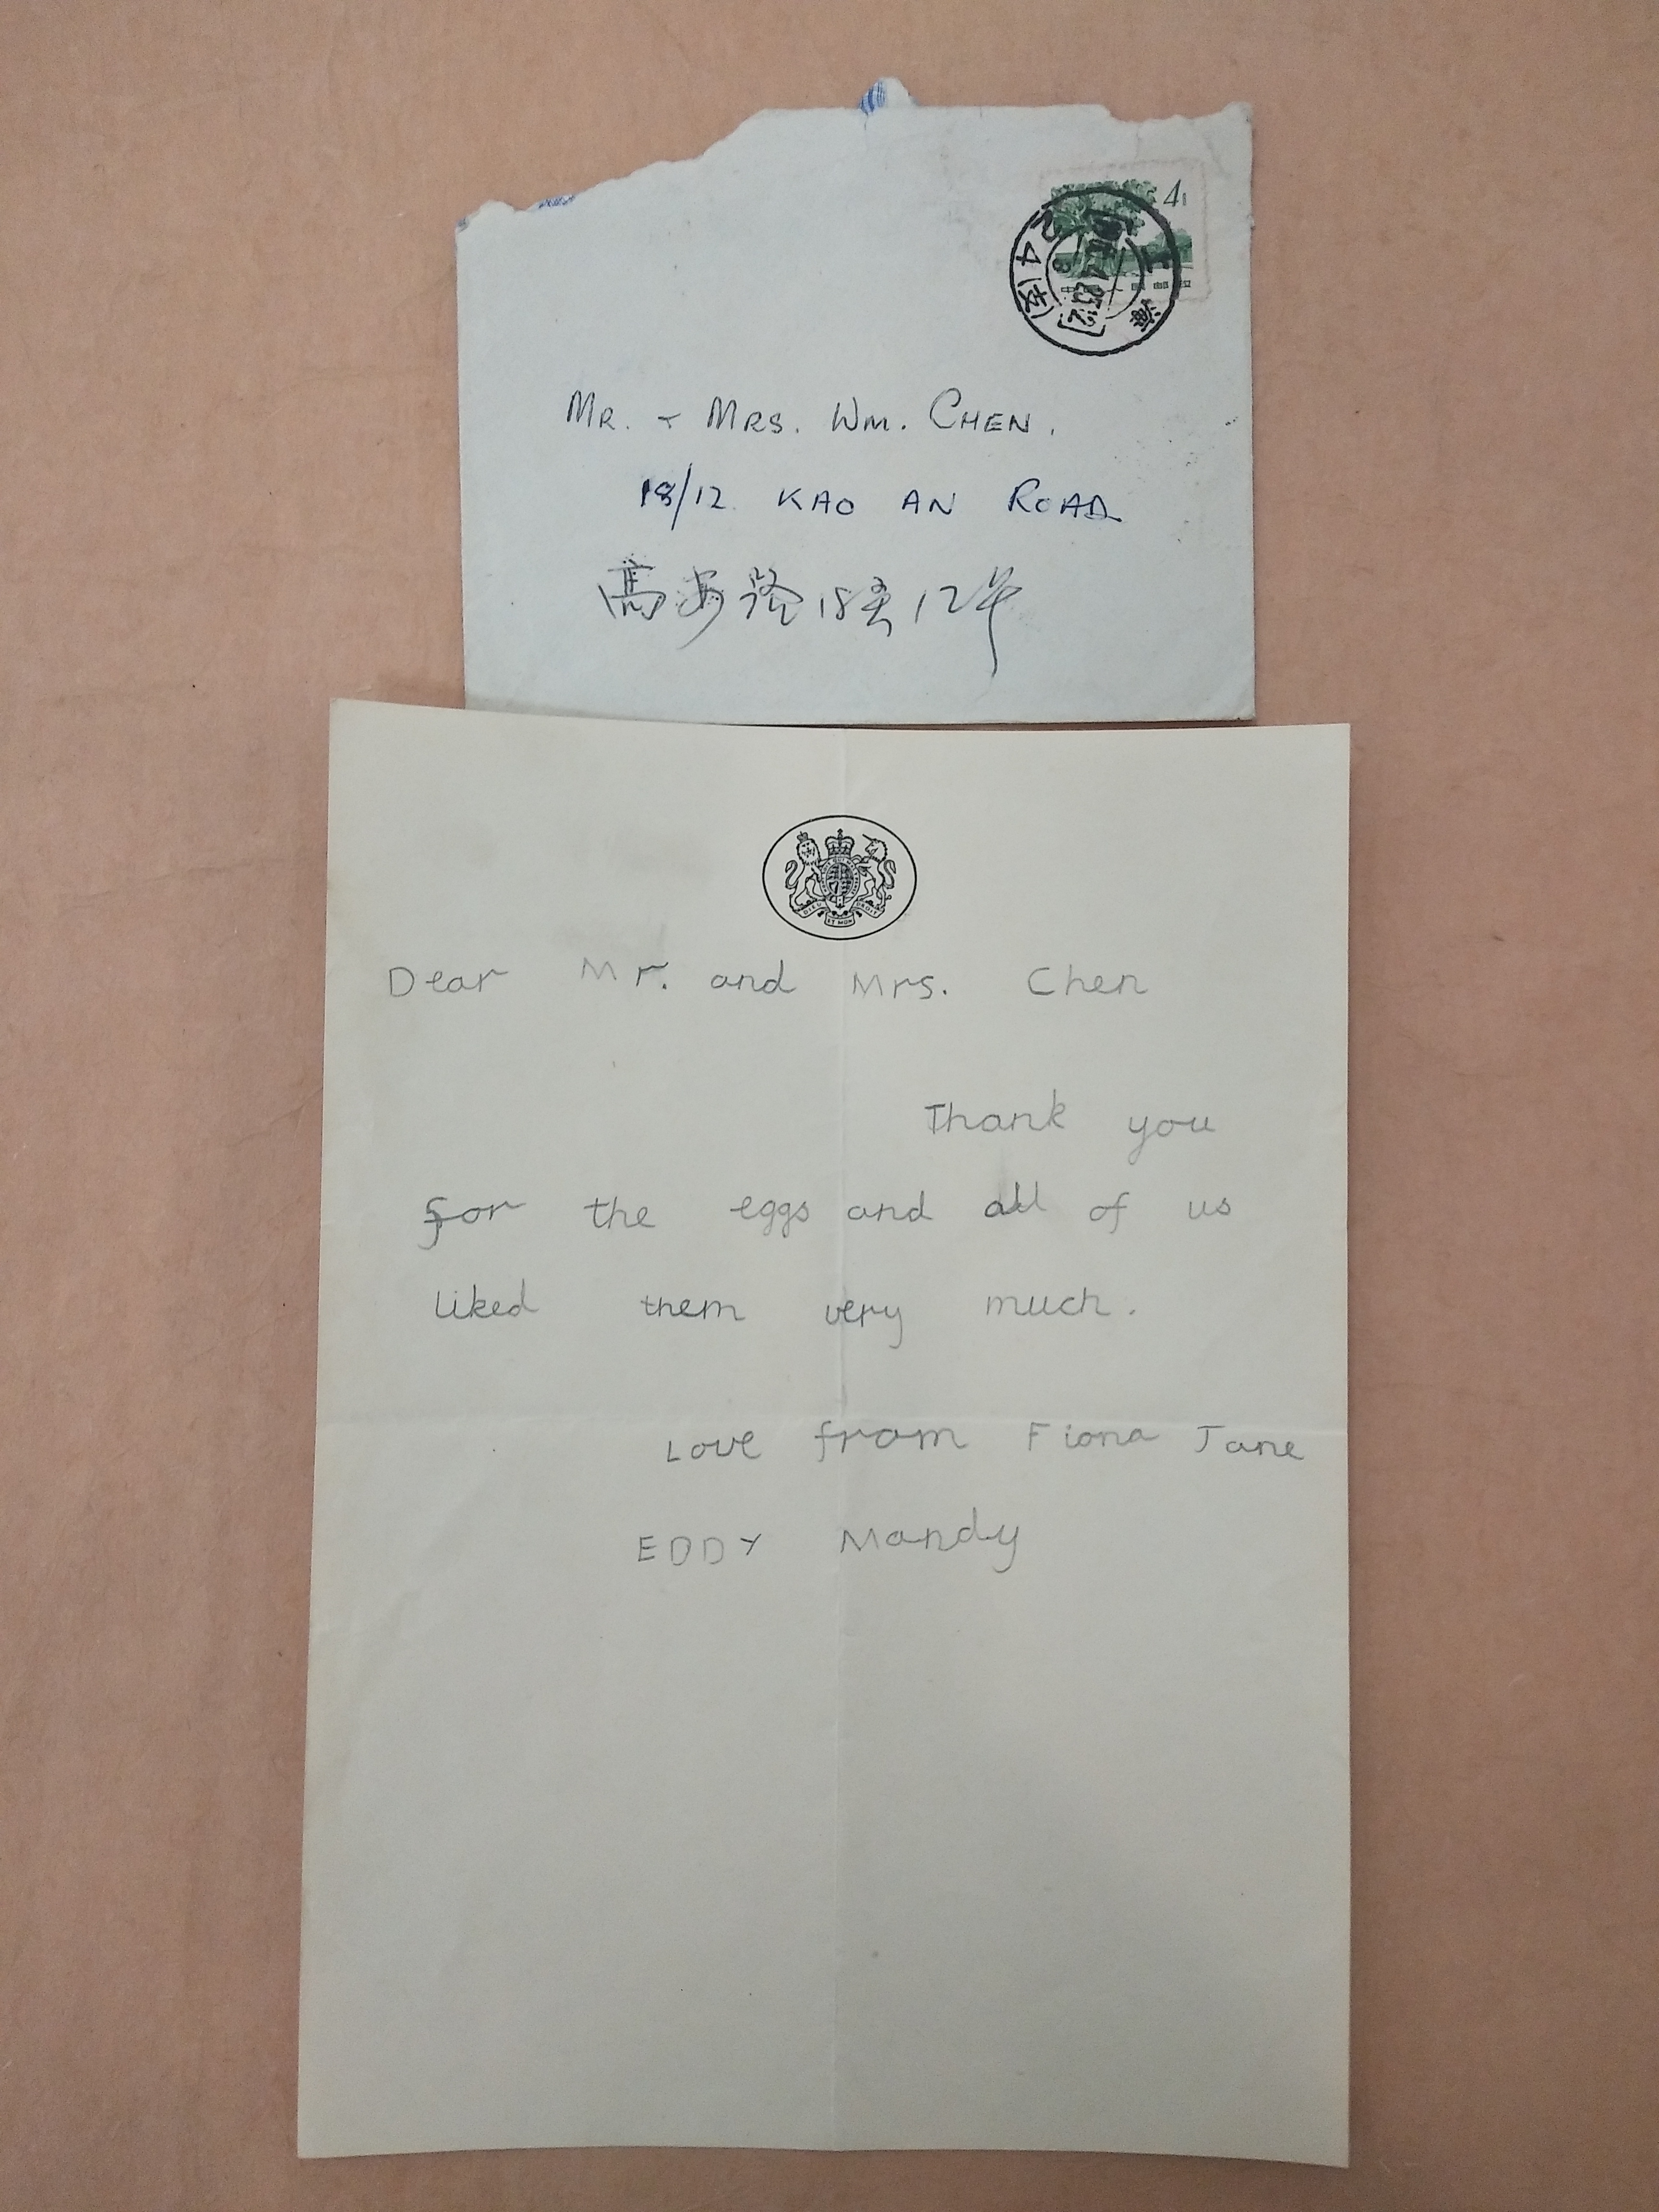 4
上海
24(支)
MR. + MRS. WM. CHEN.
18/12 KAO AN ROAD
高安路18弄12号
DIEU ET MON DROIT
Dear Mr. and Mrs. Chen
Thank you
for the eggs and all of us
liked them very much.
Love from Fiona Jane
EDDY Mandy